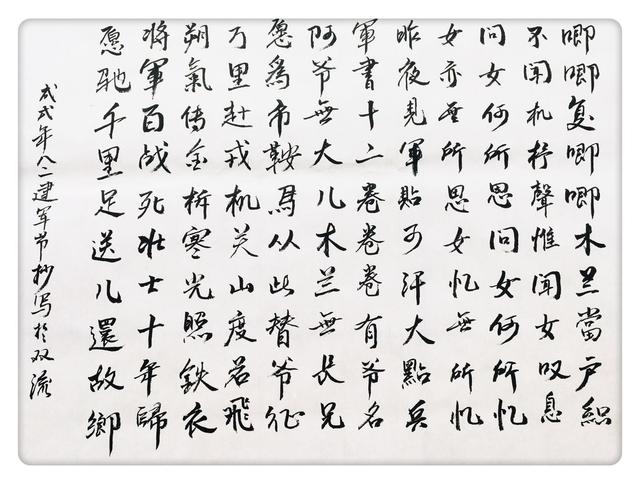 唧唧复唧唧木兰當户織
不闻机杼聲惟闻女叹息
问女何所思问女何所忆
女亦無所思女忆無所忆
昨夜見軍貼可汗大點兵
軍書十二卷卷卷有爷名
阿爷無大儿木兰無长兄
愿為市鞍馬从此替爷征
万里赴戎机关山度若飛
朔氣传金柝寒光照鉄衣
将軍百战死壮士十年歸
愿驰千里足送儿還故鄉
年八一建军节抄写於双流